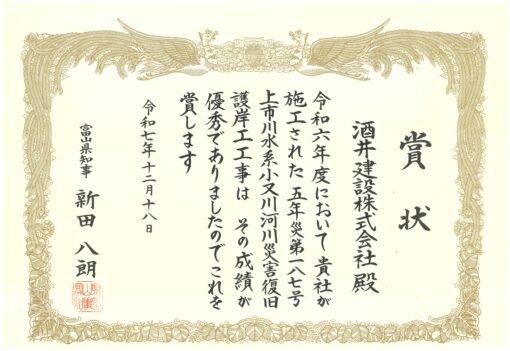 賞状
酒井建設株式会社 殿
令和六年度において貴社が
施工された 五年災第一八七号
上市川水系小又川河川災害復旧
護岸工工事は その成績が
優秀でありましたのでこれを
賞します
令和七年十二月十八日
富山県知事 新田 八朗